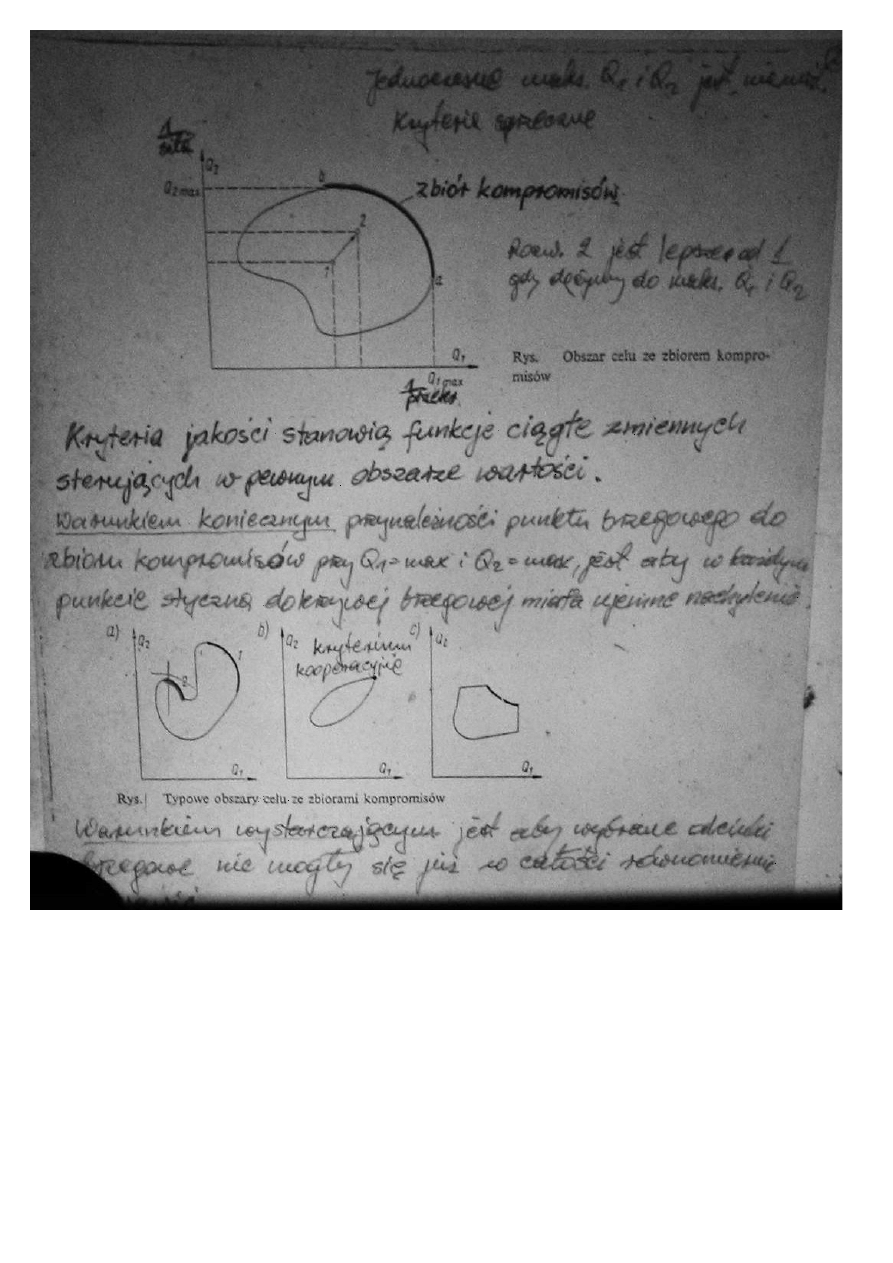 Jednoczesne maks. Q1 i Q2 jest niemoż.
Kryteria sprzeczne
1
siła
Q2
Q2 max
b
zbiór kompromisów
2
1
a
Rozw. 2 jest lepsze od 1
gdy dążymy do maks. Q1 i Q2
Q1
Q1 max
1
Rys. Obszar celu ze zbiorem kompro-
misów
Kryteria jakości stanowią funkcje ciągłe zmiennych
sterujących w pewnym obszarze wartości.
Warunkiem koniecznym przynależności punktu brzegowego do
zbioru kompromisów przy Q1=max i Q2=max, jest aby w każdym
punkcie styczna do krzywej brzegowej miała ujemne nachylenie.
a) Q2 1 2 Q1
b) Q2 kryterium kooperacyjne Q1
c) Q2 Q1
Rys. Typowe obszary celu ze zbiorami kompromisów
Warunkiem wystarczającym jest aby wybrane odcinki
brzegowe nie mogły się już w całości równomiernie